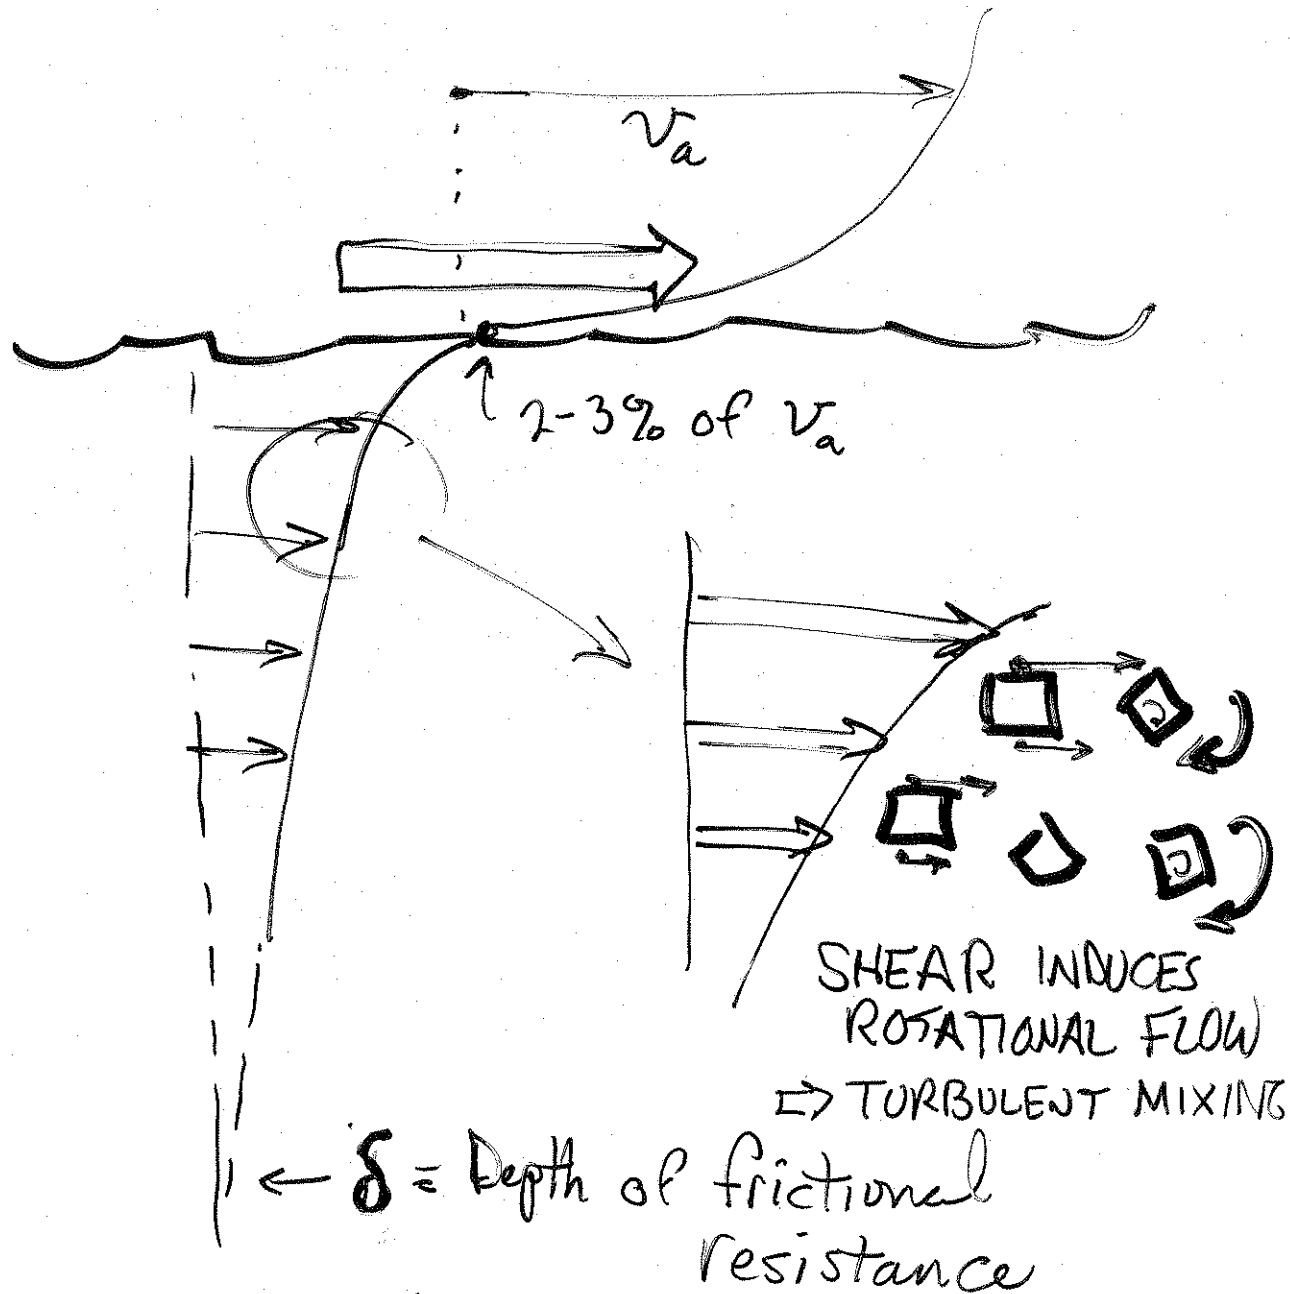 v_a
2-3% of v_a
SHEAR INDUCES
ROTATIONAL FLOW
⇨ TURBULENT MIXING
← δ = Depth of frictional
resistance